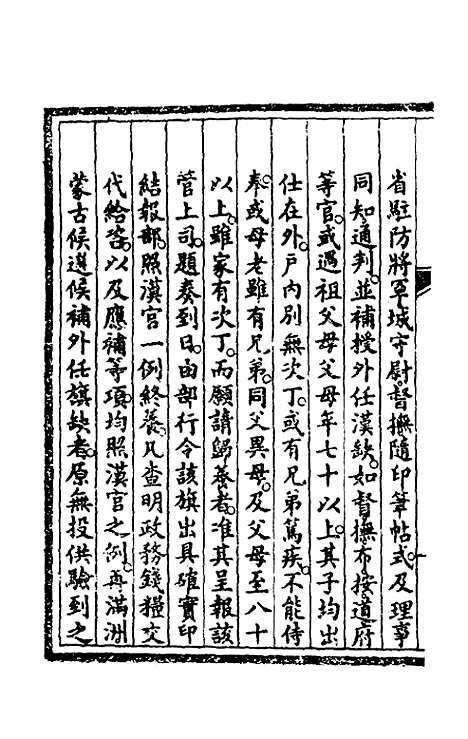 省駐防將軍城守尉督撫隨印筆帖式及理事
同知通判並補授外任漢缺如督撫布按道府
等官或遇祖父母父母年七十以上其子均出
仕在外戶內別無次丁或有兄弟篤疾不能侍
奉或母老雖有兄弟同父異母及父母至八十
以上雖家有次丁而願請歸養者准其呈報該
管上司題奏到日由部行令該旗出具確實印
結報部照漢官一例終養凡查明政務錢糧交
代給咨以及應補等項均照漢官之例再滿洲
蒙古候選候補外任旗缺者原無投供驗到之